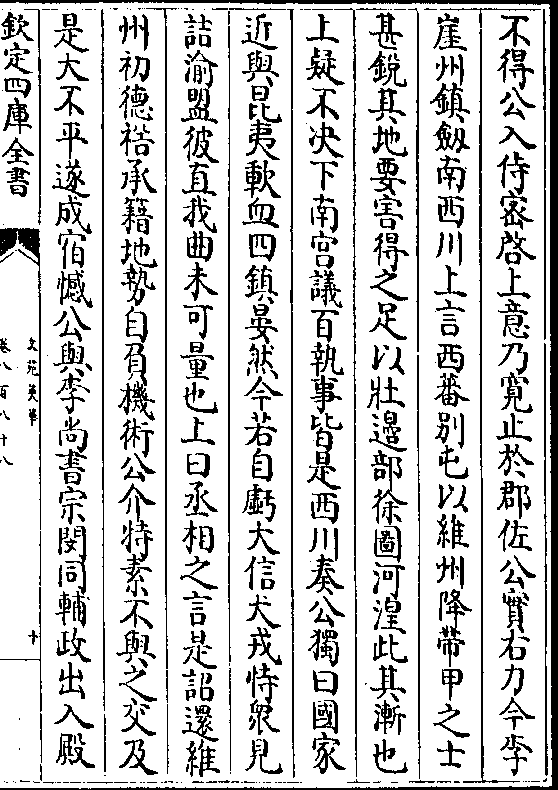 不得公入侍密啓上意乃寛止於郡佐公實右力今李
崖州鎮劔南西川上言西番别屯以維州降帶甲之士
甚鋭其地要害得之足以壯邉部徐圖河湟此其漸也
上疑不决下南宫議百執事皆是西川奏公獨曰國家
近與昆夷歃血四鎮晏然今若自虧大信犬戎恃衆見
詰渝盟彼直我曲未可量也上曰丞相之言是詔還維
州初德裕承籍地勢自負機術公介特素不與之交及
是大不平遂成宿憾公與李尚書宗閔同輔政出入殿
欽定四庫全書
文苑英華
卷八百八十八
十